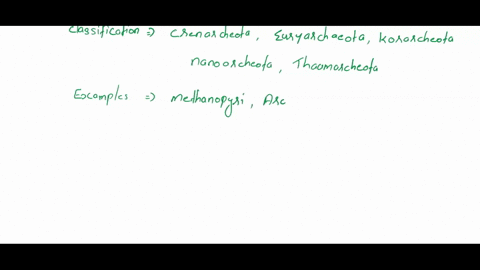 Classification => Crenarcheota, Euryarchaeota, Korarcheota
nanoarcheota, Thaumarcheota
Examples => methanopyri, Arc